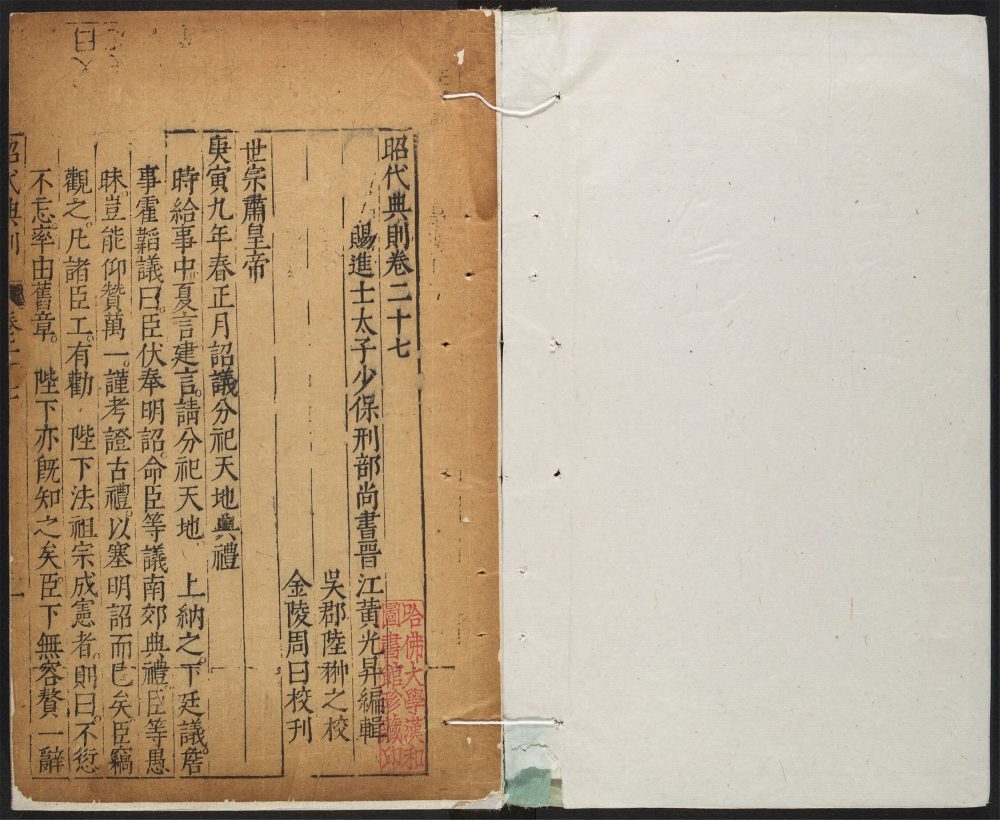 昭代典則卷二十七
賜進士太子少保刑部尚書晉江黃光昇編輯
吳郡陸翀之校
金陵周曰校刊
世宗肅皇帝
庚寅九年春正月詔議分祀天地典禮
時給事中夏言建言。請分祀天地。　上納之。下廷議。詹
事霍韜議曰。臣伏奉明詔。命臣等議南郊典禮。臣等愚
昧。豈能仰贊萬一。謹考證古禮。以塞明詔而已矣。臣竊
觀之。凡諸臣工。有勸　陛下法祖宗成憲者。則曰。不愆
不忘。率由舊章。　陛下亦既知之矣。臣下無容贅一辭
昭代典則　卷二十七　一
哈佛大學漢和
圖書館珍藏印